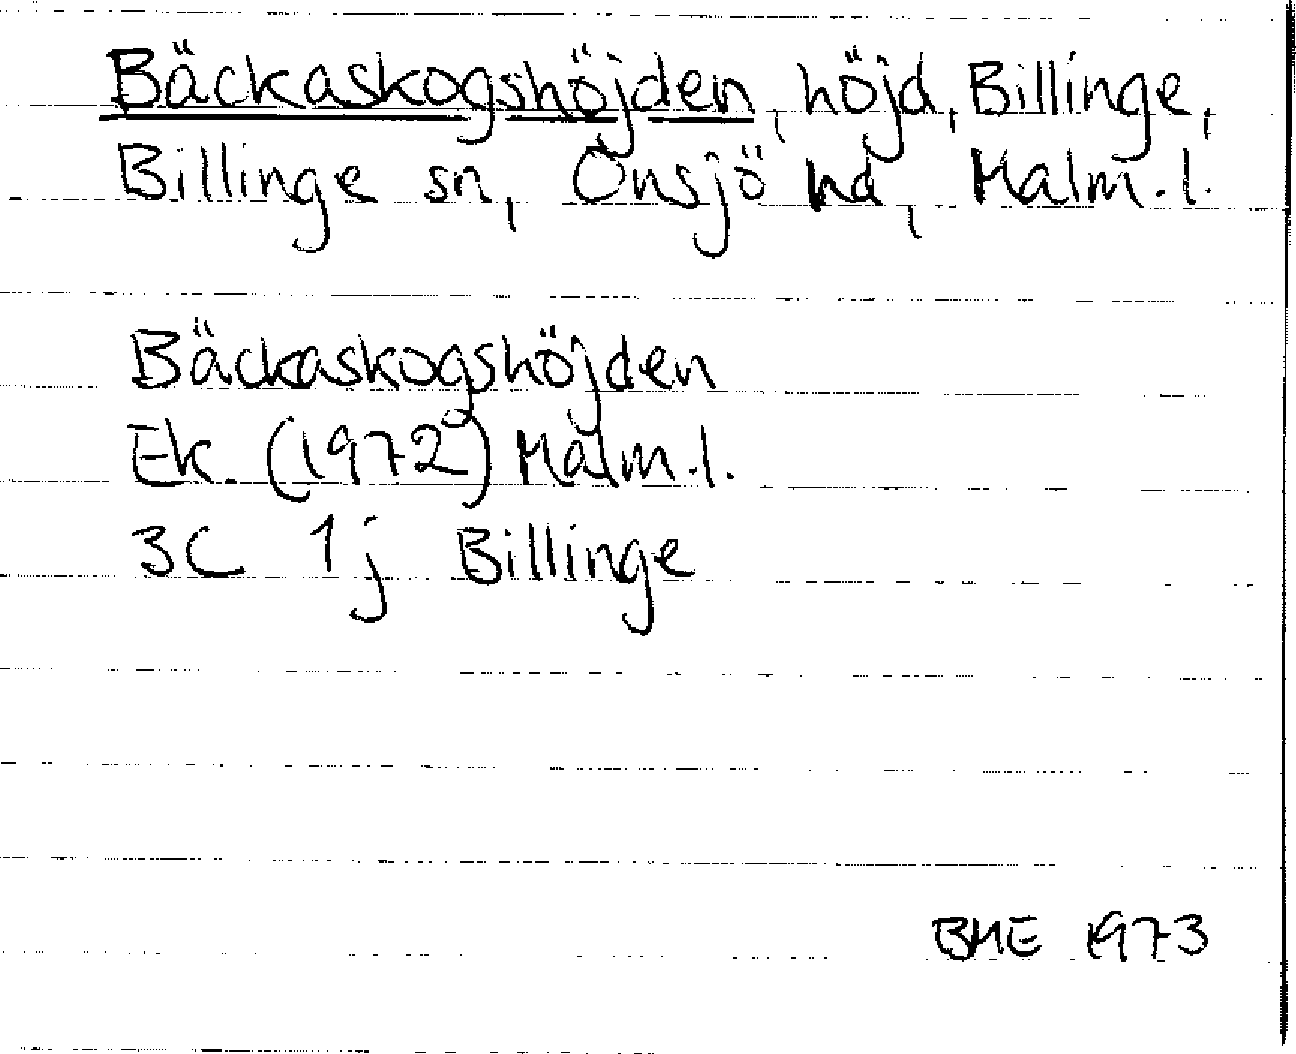 Bäckaskogshöjden, höjd, Billinge,
Billinge sn, Onsjö hd, Malm.l.
Bäckaskogshöjden
Ek. (1972) Malm.l.
3C 1j Billinge
BME 1973